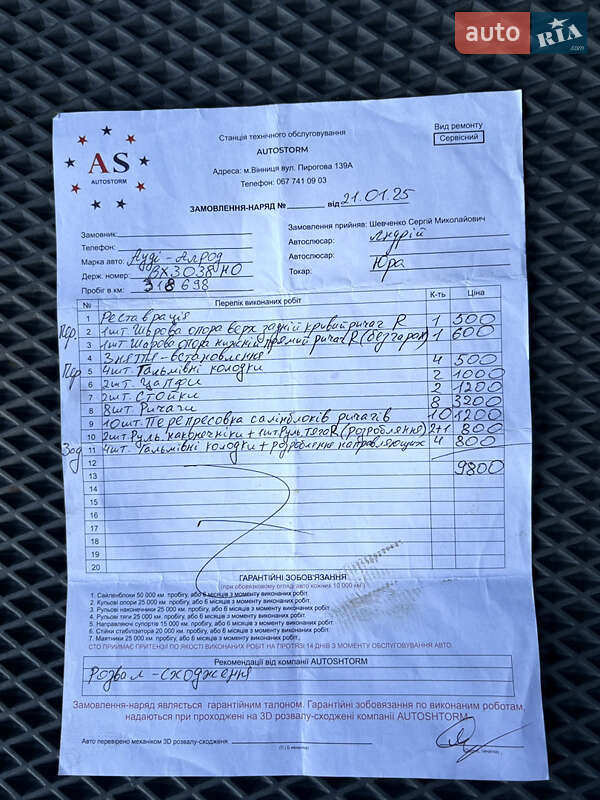 auto RIA.com
Вид ремонту
Сервісний
Станція технічного обслуговування
AUTOSTORM
AS
AUTOSTORM
Адреса: м.Вінниця вул. Пирогова 139А
Телефон: 067 741 09 03
ЗАМОВЛЕННЯ-НАРЯД № від 21.01.25
Замовлення прийняв: Шевченко Сергій Миколайович
Замовник:
Автослюсар: Андрій
Телефон:
Автослюсар:
Марка авто: Ауді-Алрод
Токар: Юра
Держ. номер: ВХ3038НО
Пробіг в км: 318 698
№ Перелік виконаних робіт К-ть Ціна
1 Реставрація
Пер. 2 1шт. Шарова опора верх задній кривий ричаг R 1 500
3 1шт Шарова опора нижній прямий ричаг R (без гарант) 1 600
4 Зняття-встановлення
Пер 5 4шт. Гальмівні колодки 4 500
6 2шт. Цапфи 2 1000
7 2шт. Стойки 2 1200
8 8шт. Ричаги 8 3200
9 10шт. Перепресовка салінблоків ричагів 10 1200
10 2шт Руль. наконечніки + 1шт Руль. тяга R (розроблення) 2+1 800
Зад 11 4шт. Гальмівні колодки + розроблення направляющих 4 800
12
13 9800
14
15
16
17
18
19
20
ГАРАНТІЙНІ ЗОБОВ'ЯЗАННЯ
(при обовязковому огляді авто кожних 10 000 км.)
1. Сайлентблоки 50 000 км. пробігу, або 6 місяців з моменту виконаних робіт.
2. Кульові опори 25 000 км. пробігу, або 6 місяців з моменту виконаних робіт.
3. Рульові наконечники 25 000 км. пробігу, або 6 місяців з моменту виконаних робіт.
4. Рульові тяги 25 000 км. пробігу, або 6 місяців з моменту виконаних робіт.
5. Направляючі супорта 15 000 км. пробігу, або 6 місяців з моменту виконаних робіт.
6. Стійки стабілізатора 20 000 км. пробігу, або 6 місяців з моменту виконаних робіт.
7. Маятники 25 000 км. пробігу, або 6 місяців з моменту виконаних робіт.
СТО ПРИЙМАЄ ПРИТЕНЗІЇ ПО ЯКОСТІ ВИКОНАНИХ РОБІТ НА ПРОТЯЗІ 14 ДНІВ З МОМЕНТУ ОБСЛУГОВУВАННЯ АВТО.
Рекомендації від компанії AUTOSHTORM
Розвал-сходження
Замовлення-наряд являється гарантійним талоном. Гарантійні зобовязання по виконаним роботам,
надаються при проходжені на 3D розвалу-сходжені компанії AUTOSHTORM
Авто перевірено механіком 3D розвалу-сходженя.